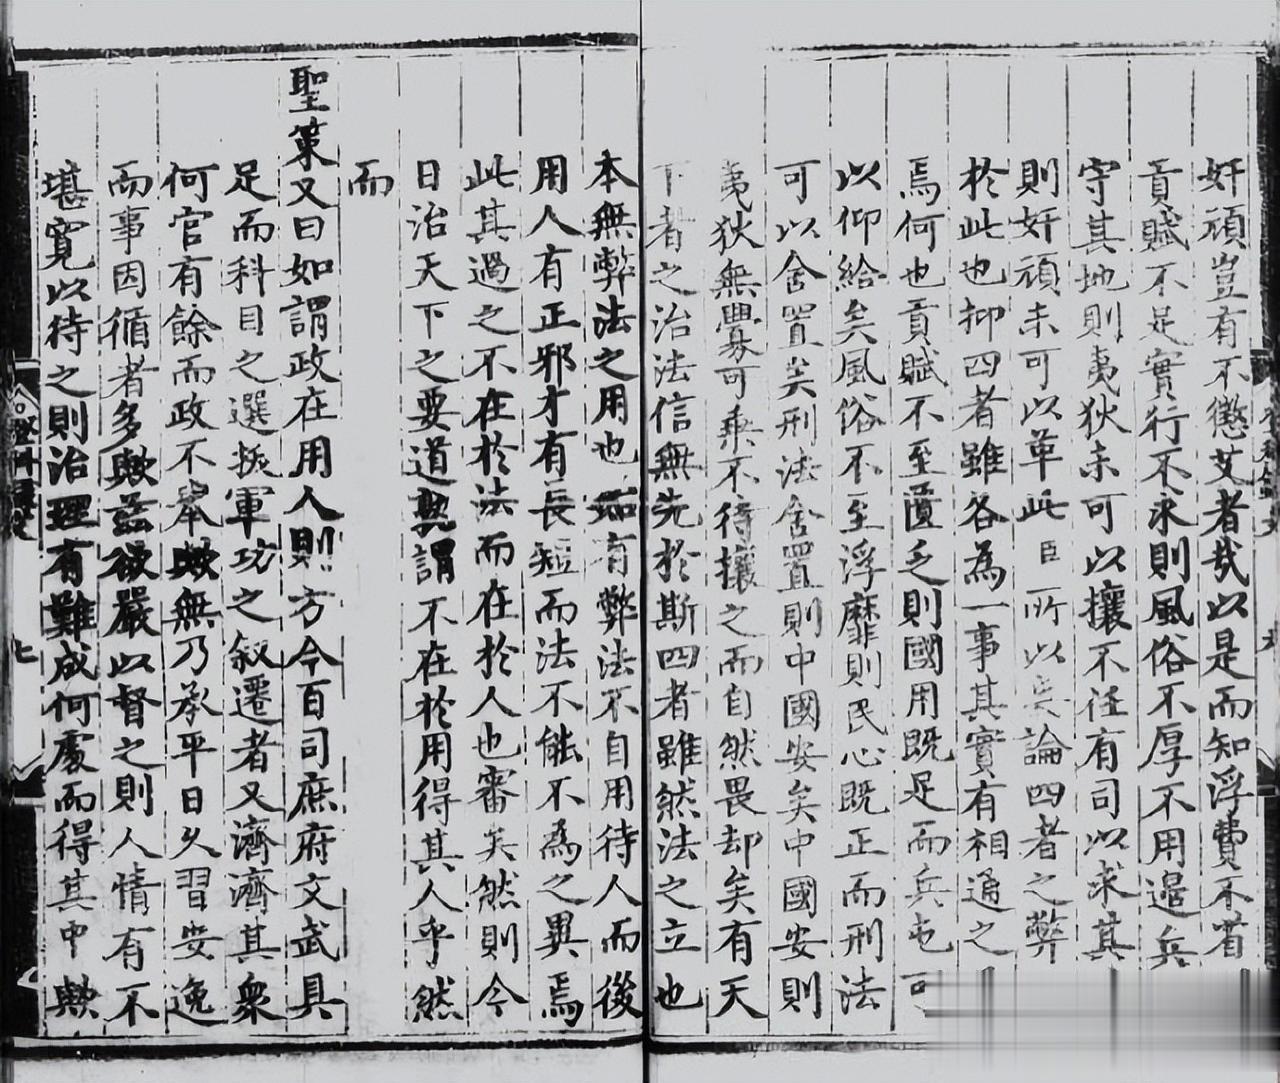 奸頑豈有不懲艾者哉以是而知浮費不省
貢賦不足實行不求則風俗不厚不用邉兵
守其地則夷狄未可以攘不任有司以求其
則奸頑未可以革此臣所以論四者之弊
於此也抑四者雖各為一事其實有相通之
焉何也貢賦不至匱乏則國用既足而兵屯可
以仰給矣風俗不至浮靡則民心既正而刑法
可以舍置矣刑法舍置則中國安矣中國安則
夷狄無釁可乘不待攘之而自然畏却矣有天
下者之治法信無先於斯四者雖然法之立也
本無弊法之用也有弊法不自用待人而後
用人有正邪才有長短而法不能不為之異焉
此其過之不在於法而在於人也審矣然則今
日治天下之要道孰謂不在於用得其人乎然
而
聖策又曰如謂政在用人則方今百司庶府文武具
足而科目之選掞軍功之叙遷者又濟濟其衆
何官有餘而政不舉歟無乃承平日久習安逸
而事因循者多歟茲欲嚴以督之則人情有不
堪寛以待之則治理有難成何處而得其中歟
七